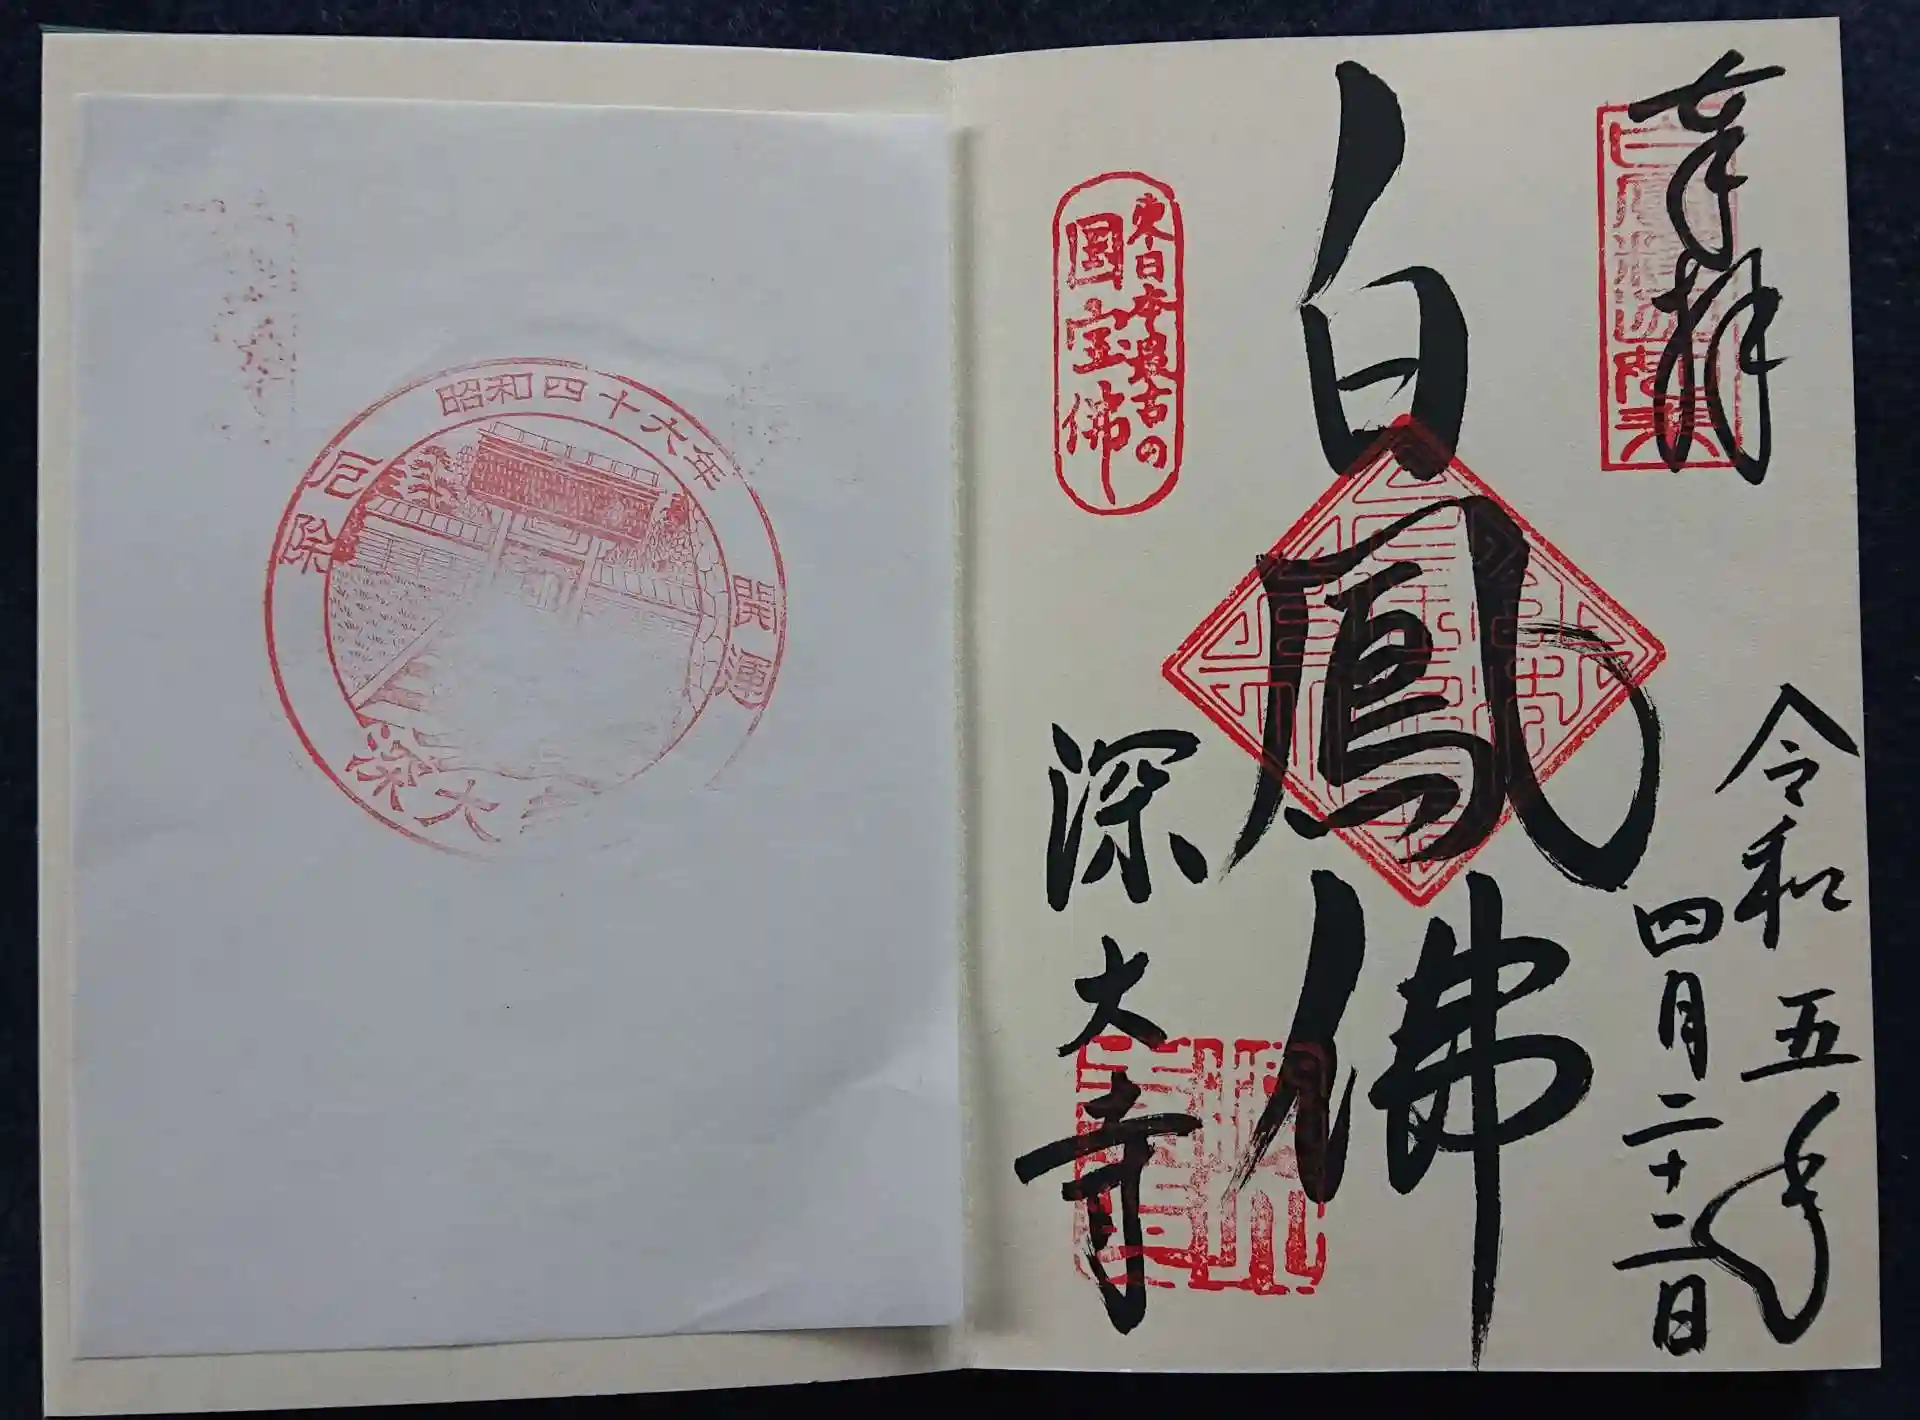 奉拝
令和五年
四月二十二日
白鳳佛
東日本最古の
国宝佛
深大寺
昭和四十六年
厄除
開運
深大